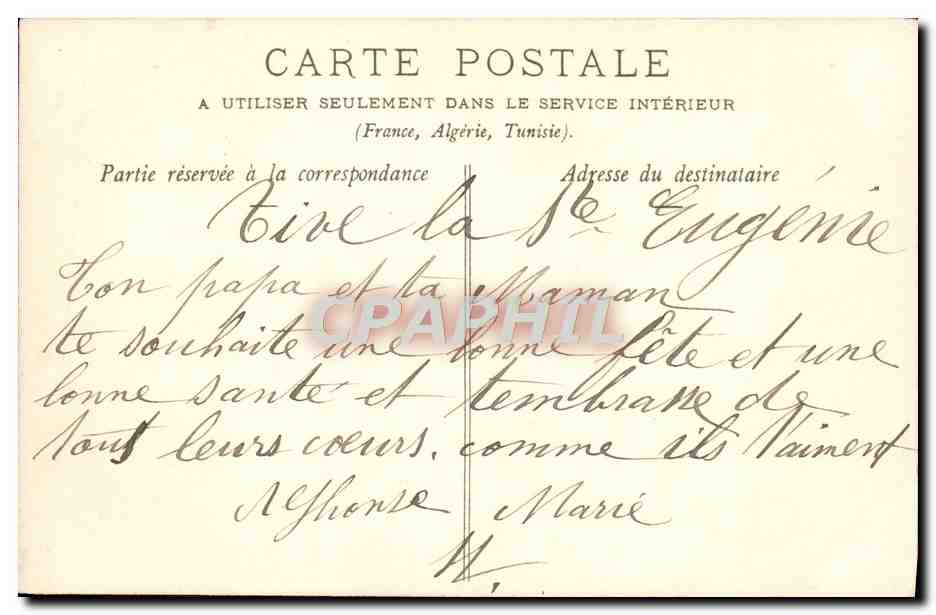 CARTE POSTALE
A UTILISER SEULEMENT DANS LE SERVICE INTÉRIEUR
(France, Algérie, Tunisie).
Partie réservée à la correspondance Adresse du destinataire
Vive la Ste Eugénie
Ton papa et ta Maman
CPAPHIL
te souhaite une bonne fête et une
bonne santé et tembrasse de
tous leurs cœurs. comme ils t'aiment
Alphonse Marie
H.